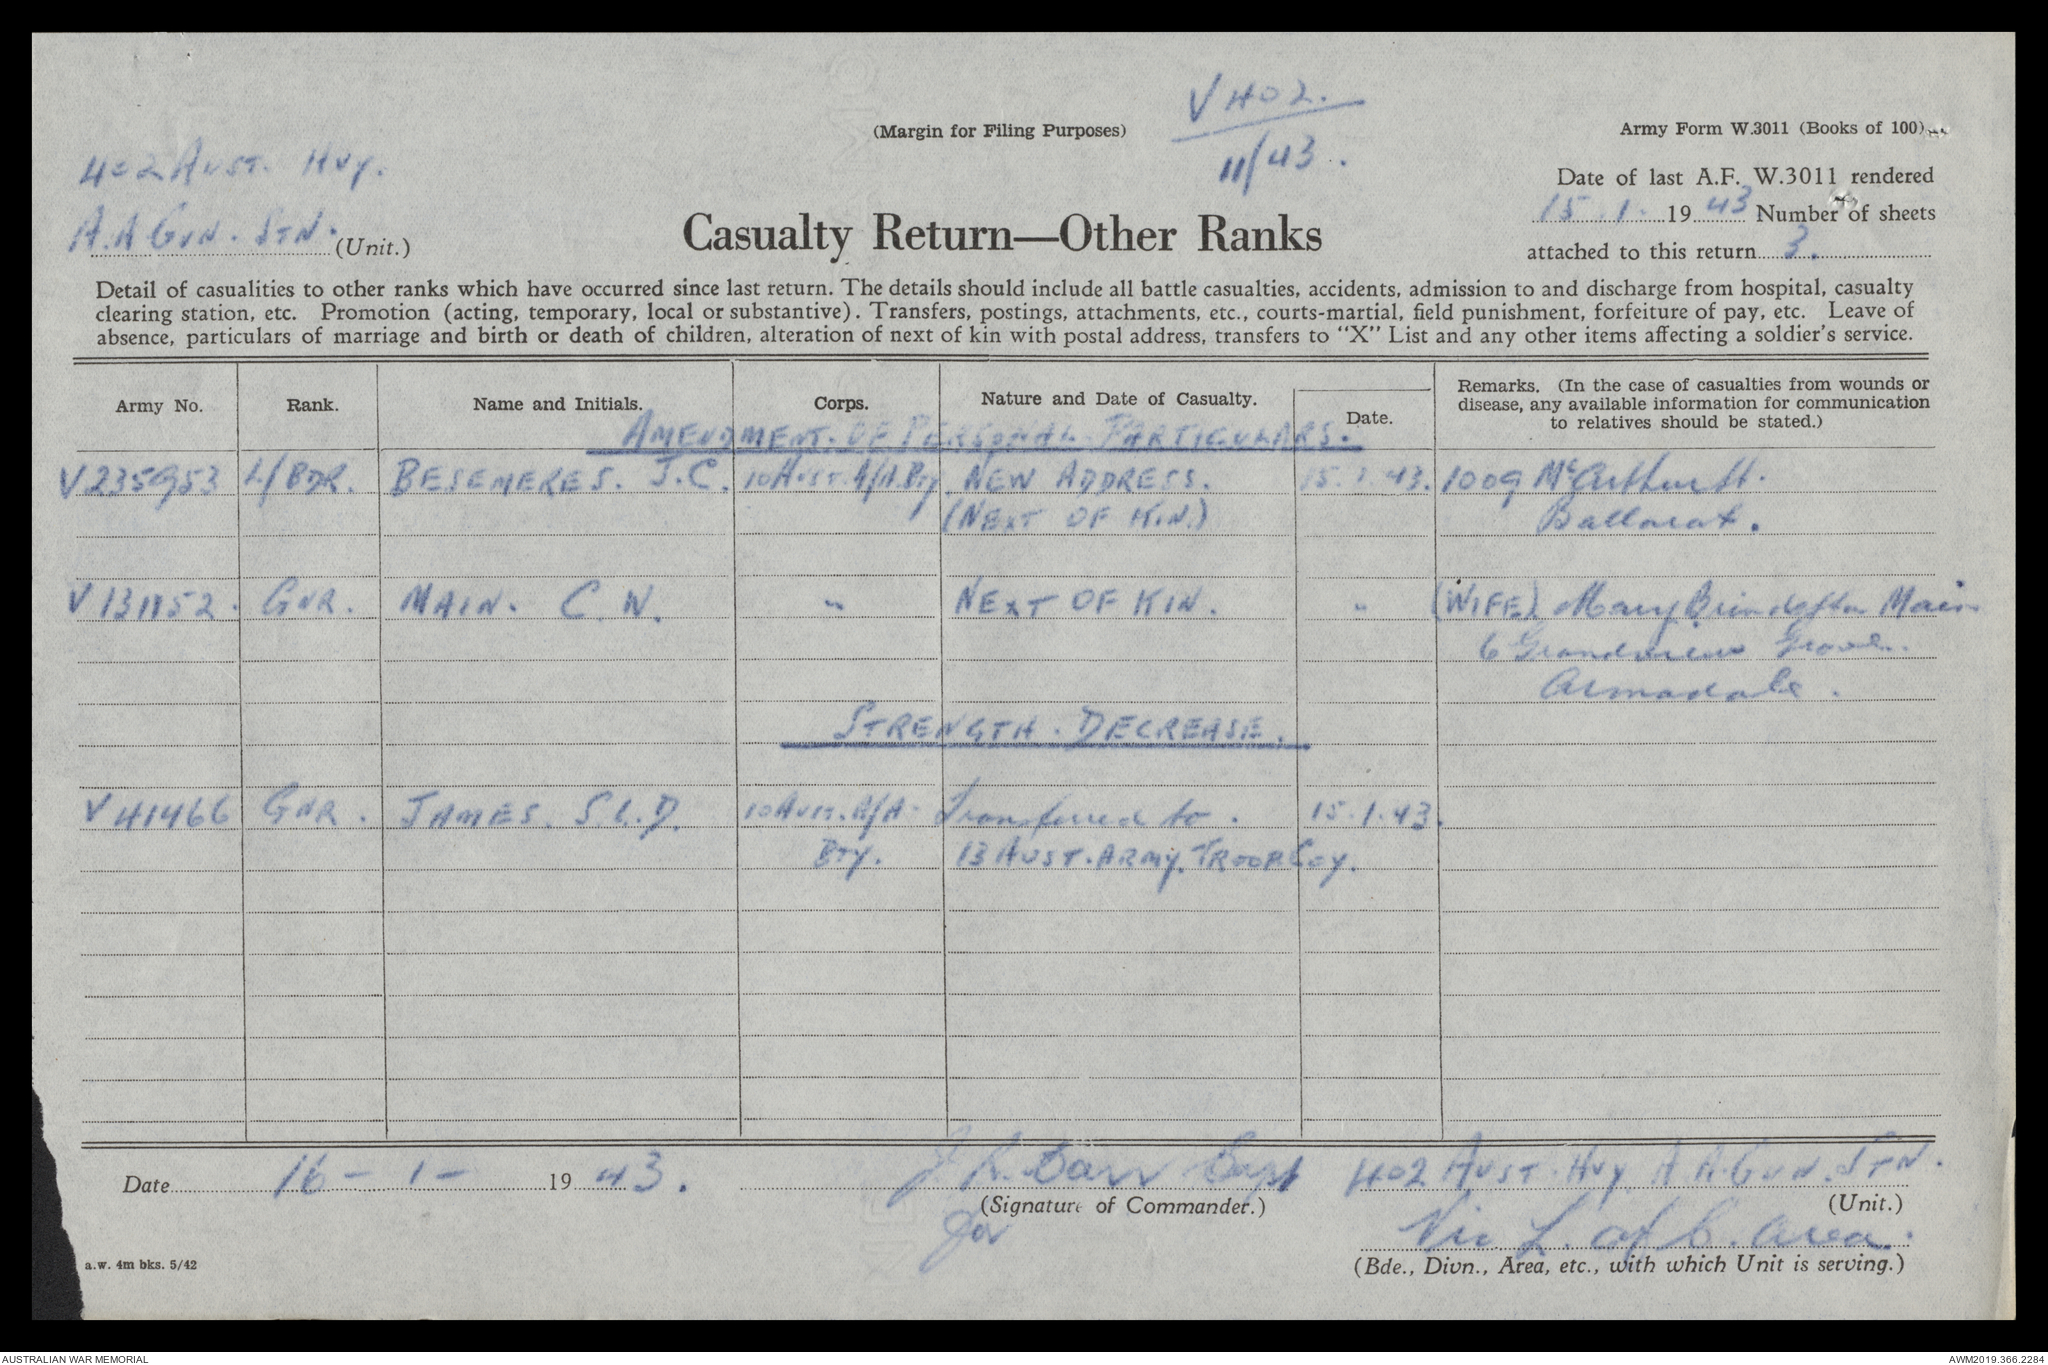 V402.
(Margin for Filing Purposes)
11/43.
Army Form W.3011 (Books of 100)
402 AUST. HVY.
A.A GUN. STN. (Unit.)
Casualty Return—Other Ranks
Date of last A.F. W.3011 rendered
15.1. 19 43 Number of sheets
attached to this return 3.
Detail of casualities to other ranks which have occurred since last return. The details should include all battle casualties, accidents, admission to and discharge from hospital, casualty
clearing station, etc. Promotion (acting, temporary, local or substantive). Transfers, postings, attachments, etc., courts-martial, field punishment, forfeiture of pay, etc. Leave of
absence, particulars of marriage and birth or death of children, alteration of next of kin with postal address, transfers to "X" List and any other items affecting a soldier's service.
Army No. Rank. Name and Initials. Corps. Nature and Date of Casualty. Date. Remarks. (In the case of casualties from wounds or
disease, any available information for communication
to relatives should be stated.)
AMENDMENT. OF PERSONAL PARTICULARS.
V235953 L/BDR. BESEMERES. J.C. 10 AUST. A/A. Bty NEW ADDRESS. 15.1.43. 1009 McArthur St.
(NEXT OF KIN.) Ballarat.
V131852. GNR. MAIN. C. N. " NEXT OF KIN. " (WIFE) Mary Main
6 Grandview Grove.
Armadale.
STRENGTH. DECREASE.
V41466 GNR. JAMES. S.L.D. 10 AUST. A/A- Transferred to. 15.1.43.
BTY. 13 AUST. ARMY. TROOP COY.
Date 16-1- 19 43. J. R. Barr Capt 402 AUST. HVY A A. GUN. STN.
(Signature of Commander.) (Unit.)
for Vic L. of C. area.
a.w. 4m bks. 5/42 (Bde., Divn., Area, etc., with which Unit is serving.)
AUSTRALIAN WAR MEMORIAL AWM2019.366.2284